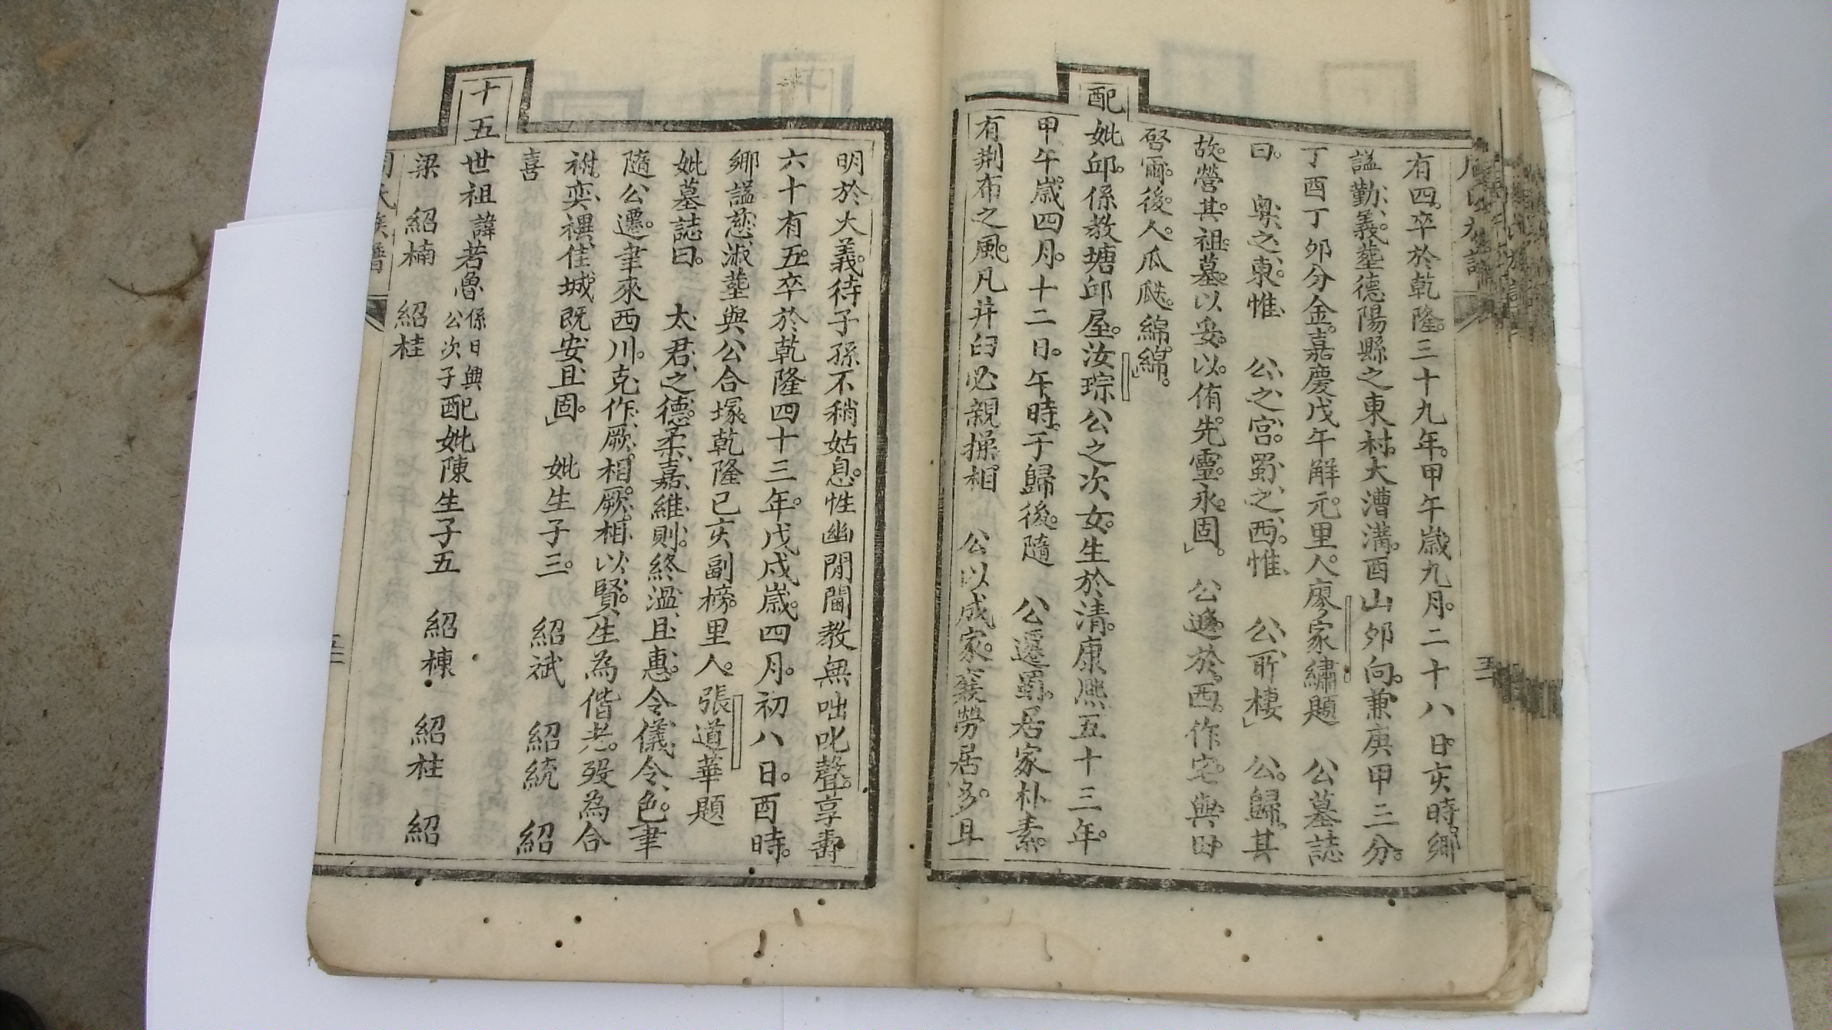 有四。卒於乾隆。三十九年。甲午歲九月。二十八日。亥時。鄉
謚勤義。塟德陽縣之東村。大漕溝。酉山夘向。兼庚甲二分。
丁酉丁夘分金。嘉慶戊午解元。里人。廖家繡題　公墓誌
曰。　粤之東。惟　公之宫。蜀之西。惟　公所棲」　公歸其
故。營其祖墓。以妥。以侑。先靈。永固。」　公遜於西。作宅與田
啓爾。後人。瓜瓞。綿綿。」
配妣邱。係教塘邱屋。汝琮公之次女。生於清康熙五十三年。
甲午歲四月。十二日。午時。于歸後。隨　公遷蜀。居家朴素。
有荆布之風。凡井臼必親操相　公以成家。襄勞居多。且
明於大義。待子孫不稍姑息。性幽閒閫教無咄叱聲。享壽
六十有五。卒於乾隆四十三年。戊戌歲。四月。初八日。酉時。
鄉謚慈淑塟與公合塚。乾隆已亥副榜。里人。張道華題
妣墓誌曰。　太君之德。柔嘉維則。終溫且惠。令儀令色。聿
隨公遷。聿來西川。克作厥相。厥相以賢。生為偕老。殁為合
祔。奕禩佳城既安且固。」　妣生子三。　紹斌　紹統　紹
喜
十五世祖諱若魯係日興公次子配妣陳生子五　紹棟　紹柱　紹
梁　紹楠　紹桂
氏族譜